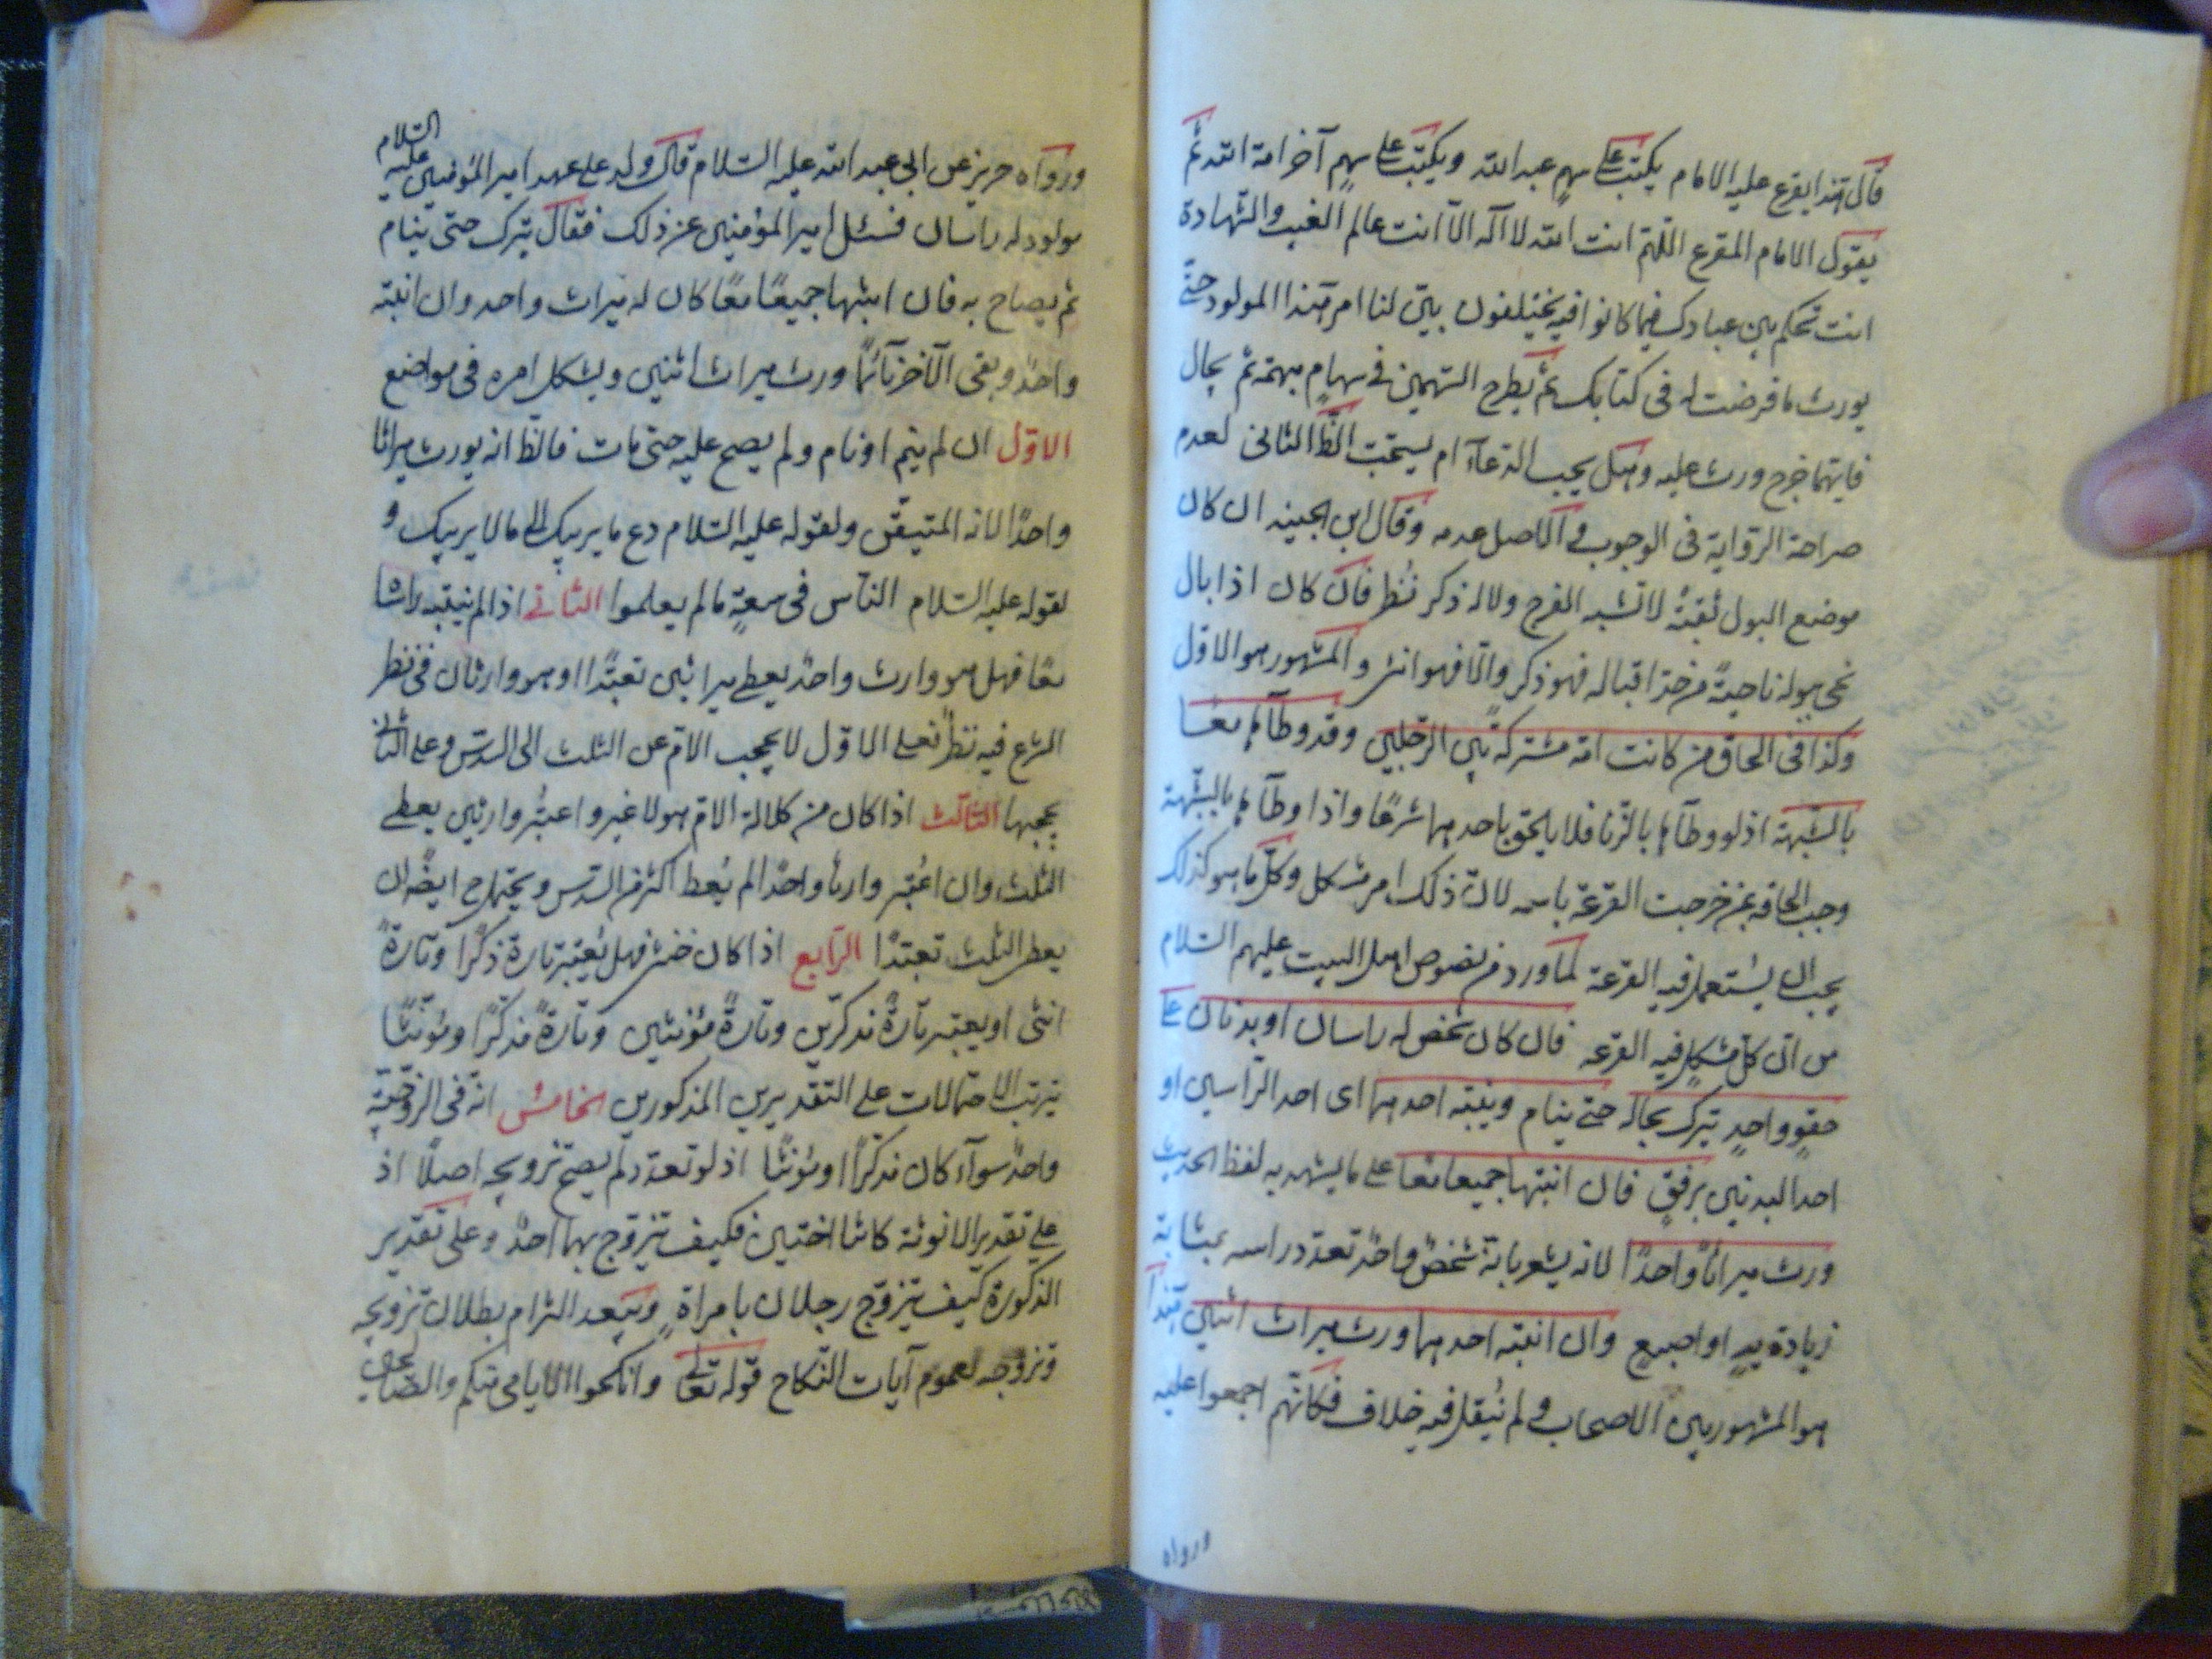 قال هذا يقرع عليه الامام يكتب على سهم عبد الله ويكتب على سهم آخر امة الله ثم
يقول الامام المقرع اللهم انت الله لا اله الا انت عالم الغيب والشهادة
انت تحكم بين عبادك فيما كانوا فيه يختلفون بيّن لنا امر هذا المولود حتى
يورث ما فرضت له فى كتابك ثم يطرح السهمين فى سهام مبهمة ثم يجال
فايهما خرج ورث عليه وهل يجب الدعآء ام يستحب الظ الثانى لعدم
صراحة الرواية فى الوجوب والاصل عدمه وقال ابن الجنيد ان كان
موضع البول ثقبةً لا تشبه الفرج ولا له ذكر نُظر فان كان اذا بال
نحى بوله ناحيةً من حذاقباله فهو ذكر والّا فهو انثى والمشهور هو الاول
وكذا فى الحاق من كانت امه مشتركة بين الرجلين وقد وطآها معا
بالشبهة اذ لو وطآها بالزنا فلا يلحق باحدهما شرعًا واذا وطآها بالشبهة
وجب الحاقه بمن خرجت القرعة باسمه لان ذلك امر مشكل وكل ما هو كذلك
يجب ان يستعمل فيه القرعة لما ورد من نصوص اهل البيت عليهم السلام
من ان كل مشكل فيه القرعه فان كان شخص له راسان او بدنان على
حقو واحد يترك بحاله حتى ينام وينبه احدهما اى احد الراسين او
احد البدنين برفق فان انتبها جميعا معا على ما يشهد به لفظ الحديث
ورث ميراثًا واحدًا لانه يشعر بانه شخص واحد تعدد راسه بمثابة
زيادة يد او اصبع وان انتبه احدهما ورث ميراث اثنين هذا
هو المشهور بين الاصحاب ولم يُنقل فيه خلاف فكانهم اجمعوا عليه
ورواه
ورواه حريز عن ابى عبد الله عليه السلام قال ولد على عهد امير المؤمنين عليه السلام
مولود له راسان فسئل امير المؤمنين عن ذلك فقال يترك حتى ينام
ثم يصاح به فان انتبها جميعًا معًا كان له ميراث واحد وان انتبه
واحد وبقى الآخر نآئمًا ورث ميراث اثنين ويشكل امره فى مواضع
الاول ان لم ينم او نام ولم يصح عليه حتى مات فالظ انه يورث ميراثا
واحدًا لانه المتيقن ولقوله عليه السلام دع ما يريبك الى ما لا يريبك و
لقوله عليه السلام الناس فى سعةٍ ما لم يعلموا الثانى اذا لم ينتبه راشا
معًا فهل هو وارث واحد يعطى ميراثين تعبدًا او هو وارثان فى نظر
الشرع فيه نظر فعلى الاول لا يحجب الام عن الثلث الى السدس وعلى الثانى
يحجبها الثالث اذا كان من كلالة الام هو لا غير واعتُبر وارثين يعطى
الثلث وان اعتُبر وارثا واحدًا لم يُعط اكثر من السدس ويحتمل ح ايضًا ان
يعطى الثلث تعبدًا الرابع اذا كان خنثى فهل يُعتبر تارة ذكرًا وتارةً
انثى او يعتبر تارةً مذكرين وتارةً مؤنثين وتارةً مذكرًا ومؤنثًا
يترتب الاحتمالات على التقديرين المذكورين الخامس انه فى الزوجية
واحد سوآء كان مذكرًا او مؤنثًا اذ لو تعدد لم يصح تزويجه اصلًا اذ
على تقدير الانوثة كانتا اختين فكيف يتزوج بهما احد وعلى تقدير
الذكورة كيف يتزوج رجلان بامراة ويبعد التزام بطلان تزويجه
وتزوجه لعموم آيات النكاح قوله تعالى وانكحوا الايامى منكم والصالحين